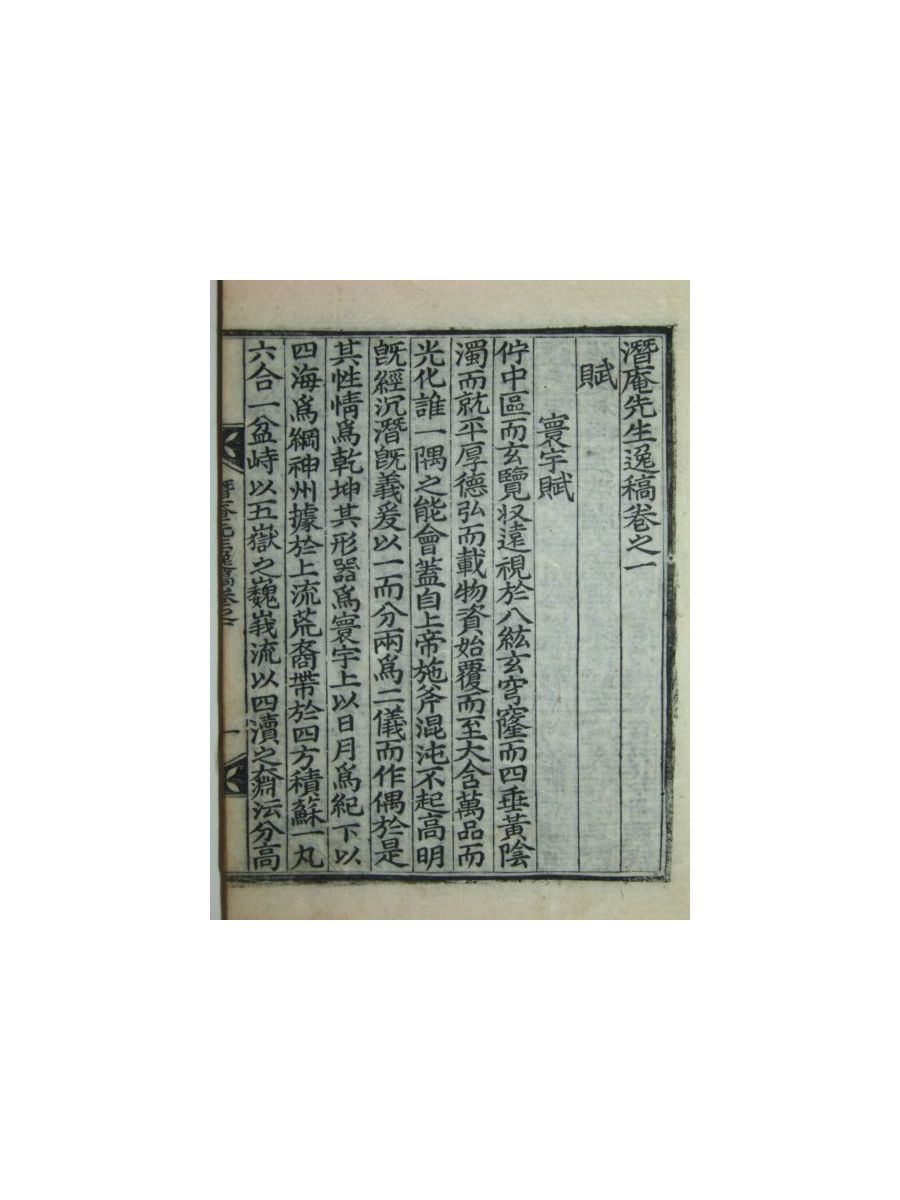 潛庵先生逸稿卷之一
賦
寰宇賦
佇中區而玄覽収遠視於八紘玄穹窿而四垂黃陰
濁而就平厚德弘而載物資始覆而至大含萬品而
光化誰一隅之能會蓋自上帝施斧混沌不起高明
旣經沉潛旣義爰以一而分兩爲二儀而作偶於是
其性情爲乾坤其形器爲寰宇上以日月爲紀下以
四海爲綱神州據於上流荒裔帶於四方積蘇一丸
六合一盆峙以五嶽之巍峩流以四瀆之齋沄分高
潛庵先生逸稿卷之一
一